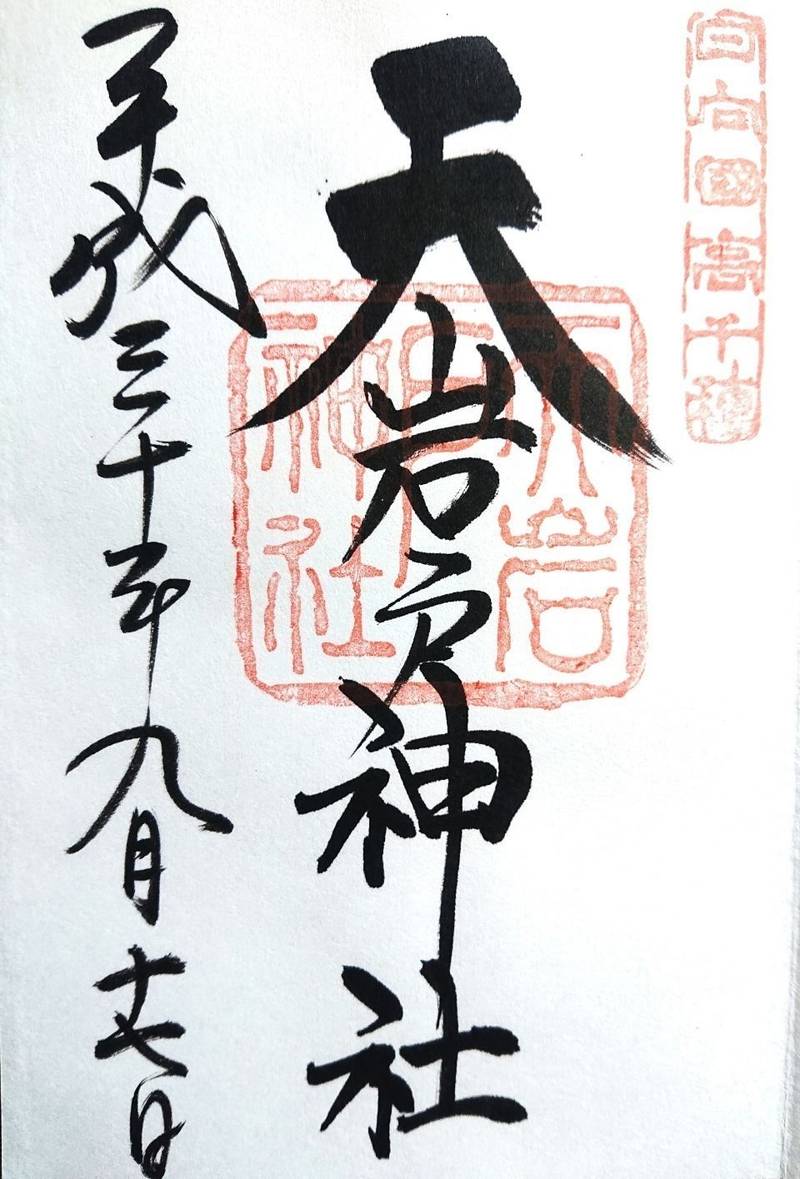 日向國高千穂
天岩戸神社
天岩
戸
神社
平成三十年九月十七日